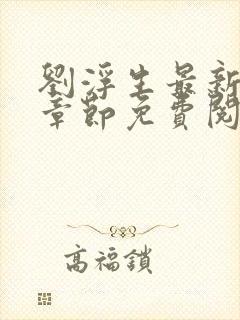 劉浮生最新
章節免費閱
高福鎖